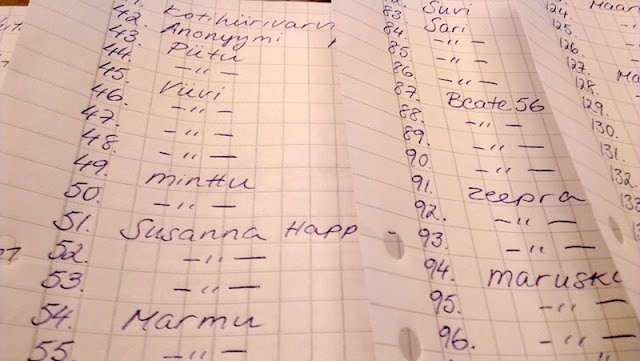 42. Kotihiirivaru
43. Anonyymi
44. Piitu
45. -"-
46. Vuvi
47. -"-
48. -"-
49. -"-
50. minttu
51. -"-
52. Susanna Happ
53. -"-
54. -"-
55. Marmu
-"-
Suvi
83. Sari
84. -"-
85. -"-
86.
87. Beate56
88. -"-
89. -"-
90. -"-
91. zeepra
92. -"-
93. -"-
94. marusk
95. -"-
96. -"-
124. Maar
125.
126.
127. Ma
128.
129.
130.
131.
132.